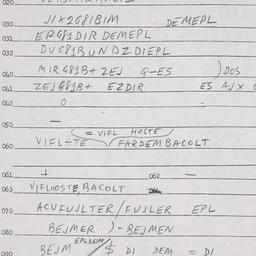 020
030 JIX2G81BIM DEMEPL
031 ERG81DIR DEMEPL
032 DUG81BUNDZDIEPL
040 MIRG81B+ZEJ Q-ES )DOS
041 ZEJG81B+ EZDIR ES AJX
O -
050
— = VIFL HOSTE
060 VIFL-TE FARDEMBACOLT
061 + 062 —
063 VIFLHOSTE, BACOLT
070 ACUFUJLTER/FUJLER EPL
080 BEJMER )-BEJMEN
090 BEJM EPLBEIM $ DI DEM = DI